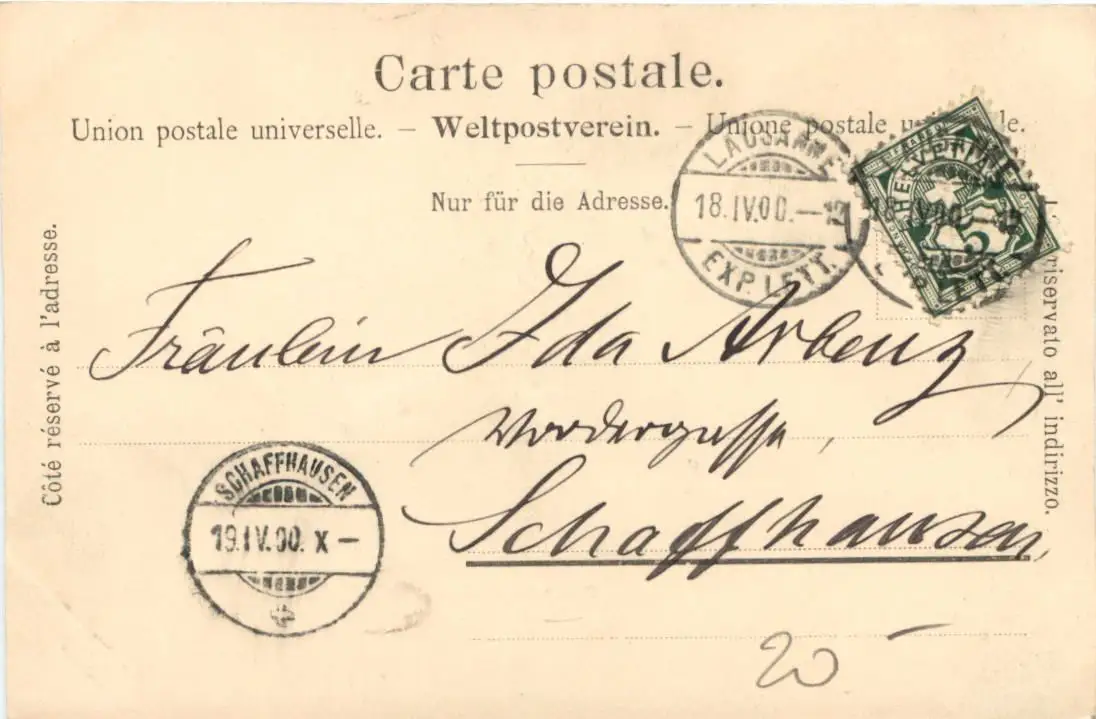 Carte postale.
Union postale universelle. – Weltpostverein. – Unione postale universale.
Nur für die Adresse.
Côté réservé à l'adresse.
riservato all' indirizzo.
LAUSANNE
18.IV.00.–12
EXP. LETT.
HELVETIA
5
18.IV.00.–12
Fräulein Ida Arbenz
Vordergasse,
Schaffhausen.
SCHAFFHAUSEN
19.IV.00. X –
20